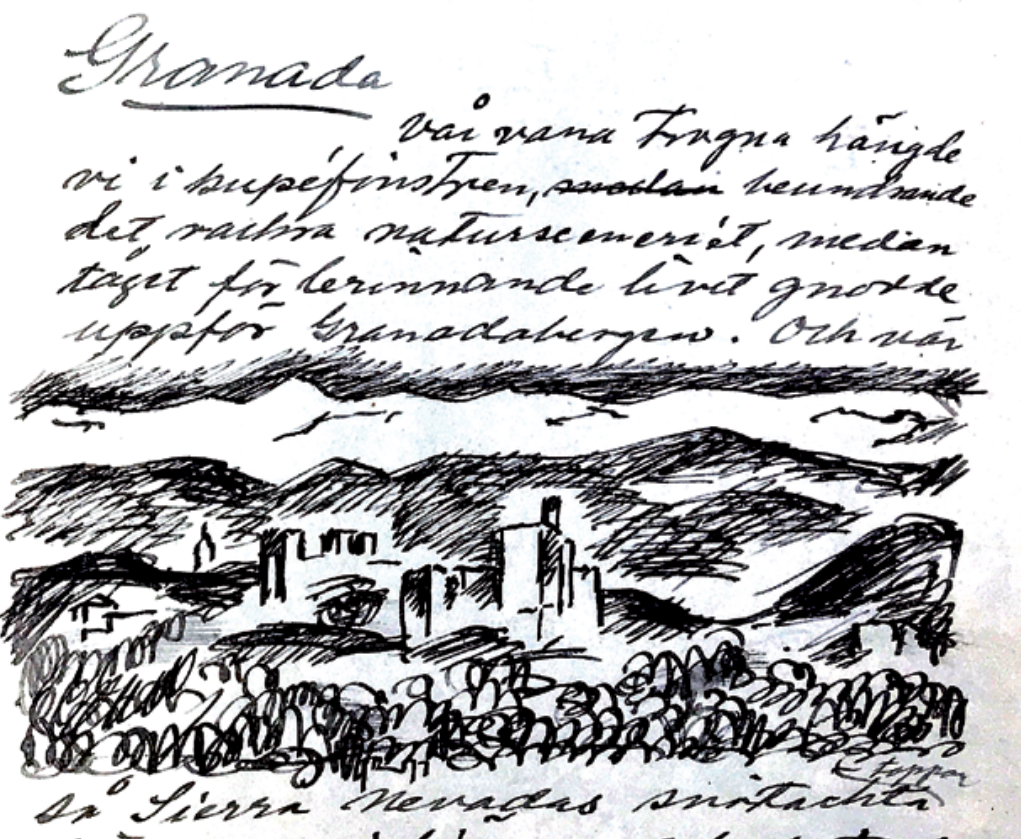 Granada
Vår vana trogna hängde
vi i kupéfönstren, beundrande
det vackra natursceneriet, medan
tåget för brinnande livet gnodde
uppför Granadabergen. Och när
toppar
så Sierra Nevadas snötäckta